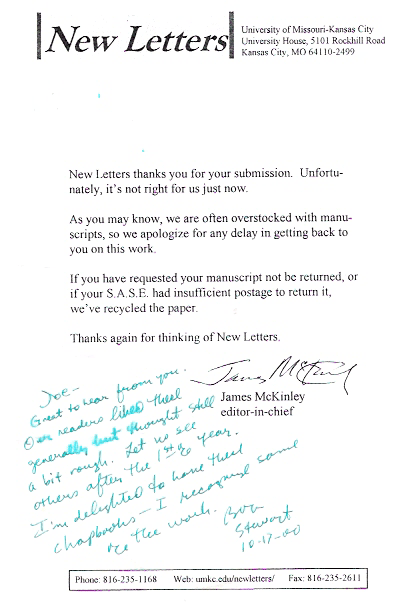 New Letters
University of Missouri-Kansas City
University House, 5101 Rockhill Road
Kansas City, MO 64110-2499
New Letters thanks you for your submission. Unfortu-
nately, it's not right for us just now.
As you may know, we are often overstocked with manu-
scripts, so we apologize for any delay in getting back to
you on this work.
If you have requested your manuscript not be returned, or
if your S.A.S.E. had insufficient postage to return it,
we've recycled the paper.
Thanks again for thinking of New Letters.
James McKinley
James McKinley
editor-in-chief
Joe-
Great to hear from you.
Our readers liked these
generally but thought still
a bit rough. Let us see
others after the 1st of year.
I'm delighted to have these
chapbooks - I recognize some
of the work.
Bob
Stewart
10-17-00
Phone: 816-235-1168 Web: umkc.edu/newletters/ Fax: 816-235-2611